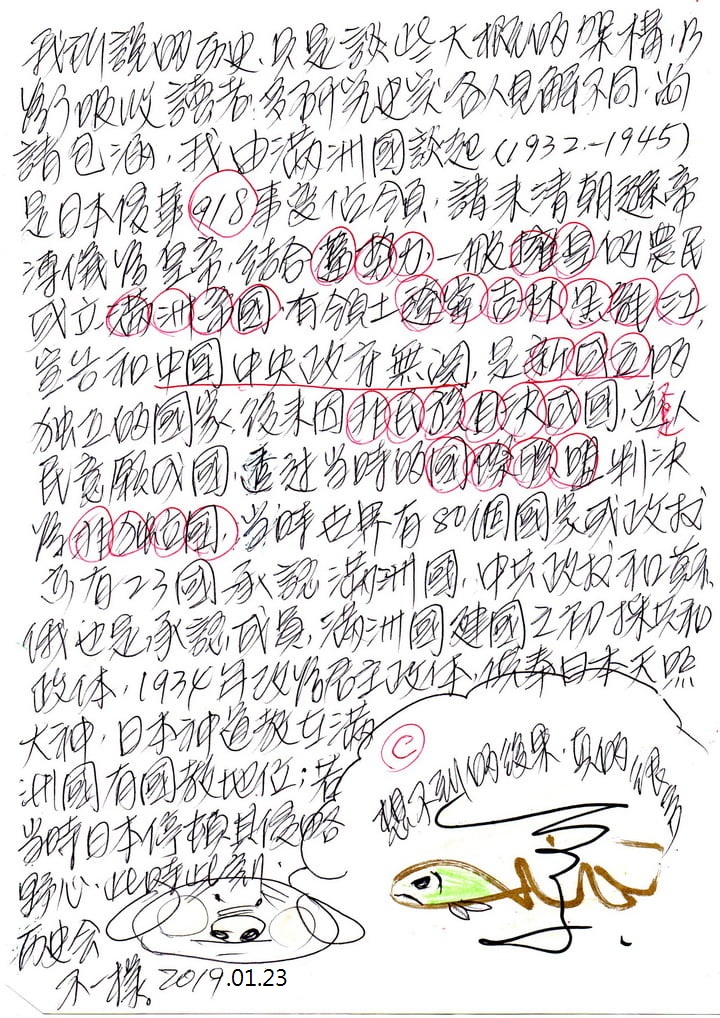 我所說的历史,只是談些大概的架構,以
吸收讀者,多研究史家各人見解不同,尚
請包涵,我由滿洲國談起(1932.-1945)
是日本侵華918事变佔領,請末清朝遜帝
溥儀為皇帝,結合舊勢力,一般擁皇的農民
成立滿洲帝國,有領土遼寧吉林黑龍江,
宣告和中國中央政府無関,是新国立的
独立的國家,後來因非民族自決成國,違人
民意願成國,透过当時的國際聯盟判決
為非独立國,当時世界有80個國家或政权
亦有23國承認滿洲國,中共政权和蘇
俄也是承認成員,滿洲國建國之初採共和
政体,1934年改為君主政体,供奉日本天照
大神,日本神道教在滿
洲國有國教地位;若
当時日本停頓其侵略
野心,此時此刻,
历史会
不一樣。2019.01.23
©
想不到的後果,真的很多